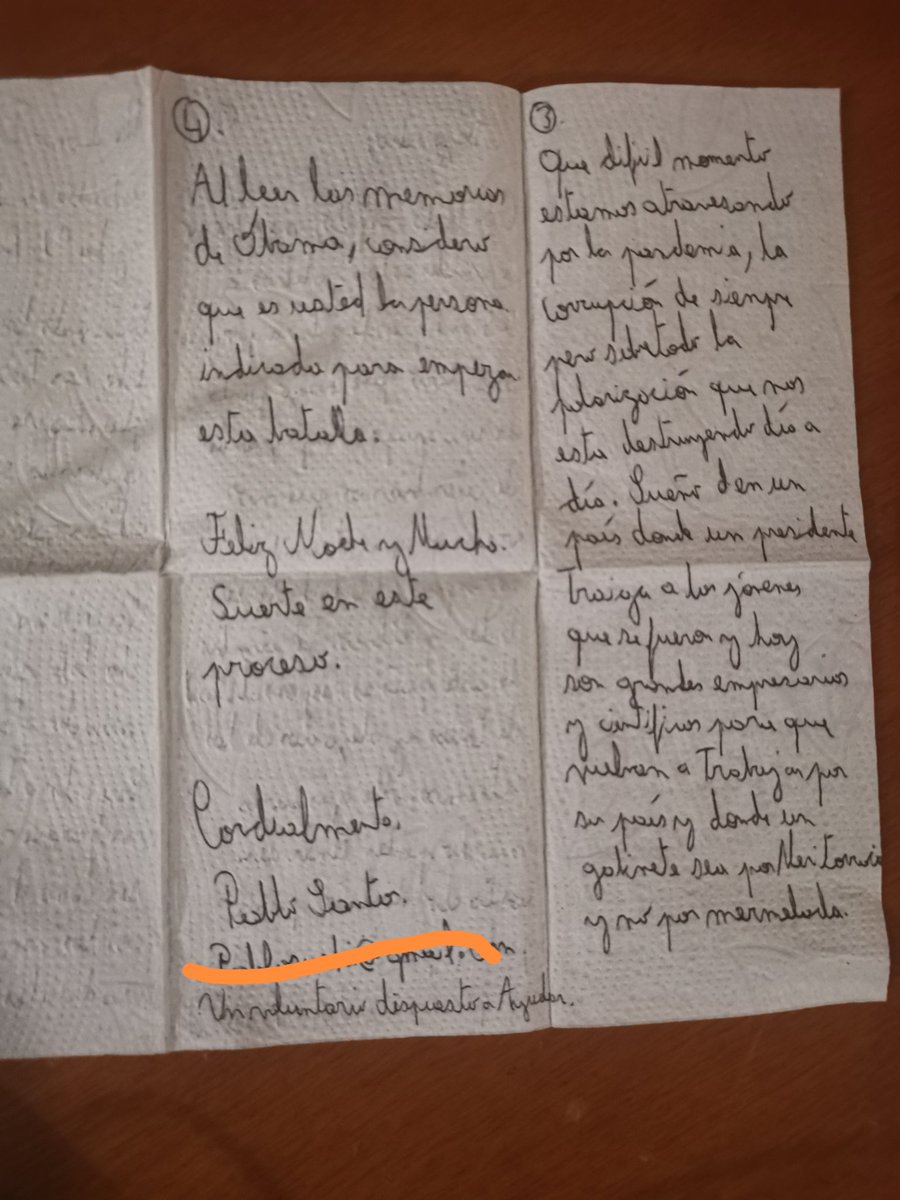 ③.
Que difícil momento
estamos atravesando
por la pandemia, la
corrupción de siempre
pero sobretodo la
polarización que nos
esta destruyendo día a
día. Sueño en un
país donde un presidente
traiga a los jóvenes
que se fueron y hoy
son grandes empresarios
y científicos para que
vuelvan a trabajar por
su país y donde un
gabinete sea por Meritocracia
y no por mermelada.
④.
Al leer las memorias
de Obama, considero
que es usted la persona
indicada para empezar
esta batalla.
Feliz Noche y Mucha.
Suerte en este
proceso.
Cordialmente,
Pablo Santos.
Un voluntario dispuesto a Ayudar.